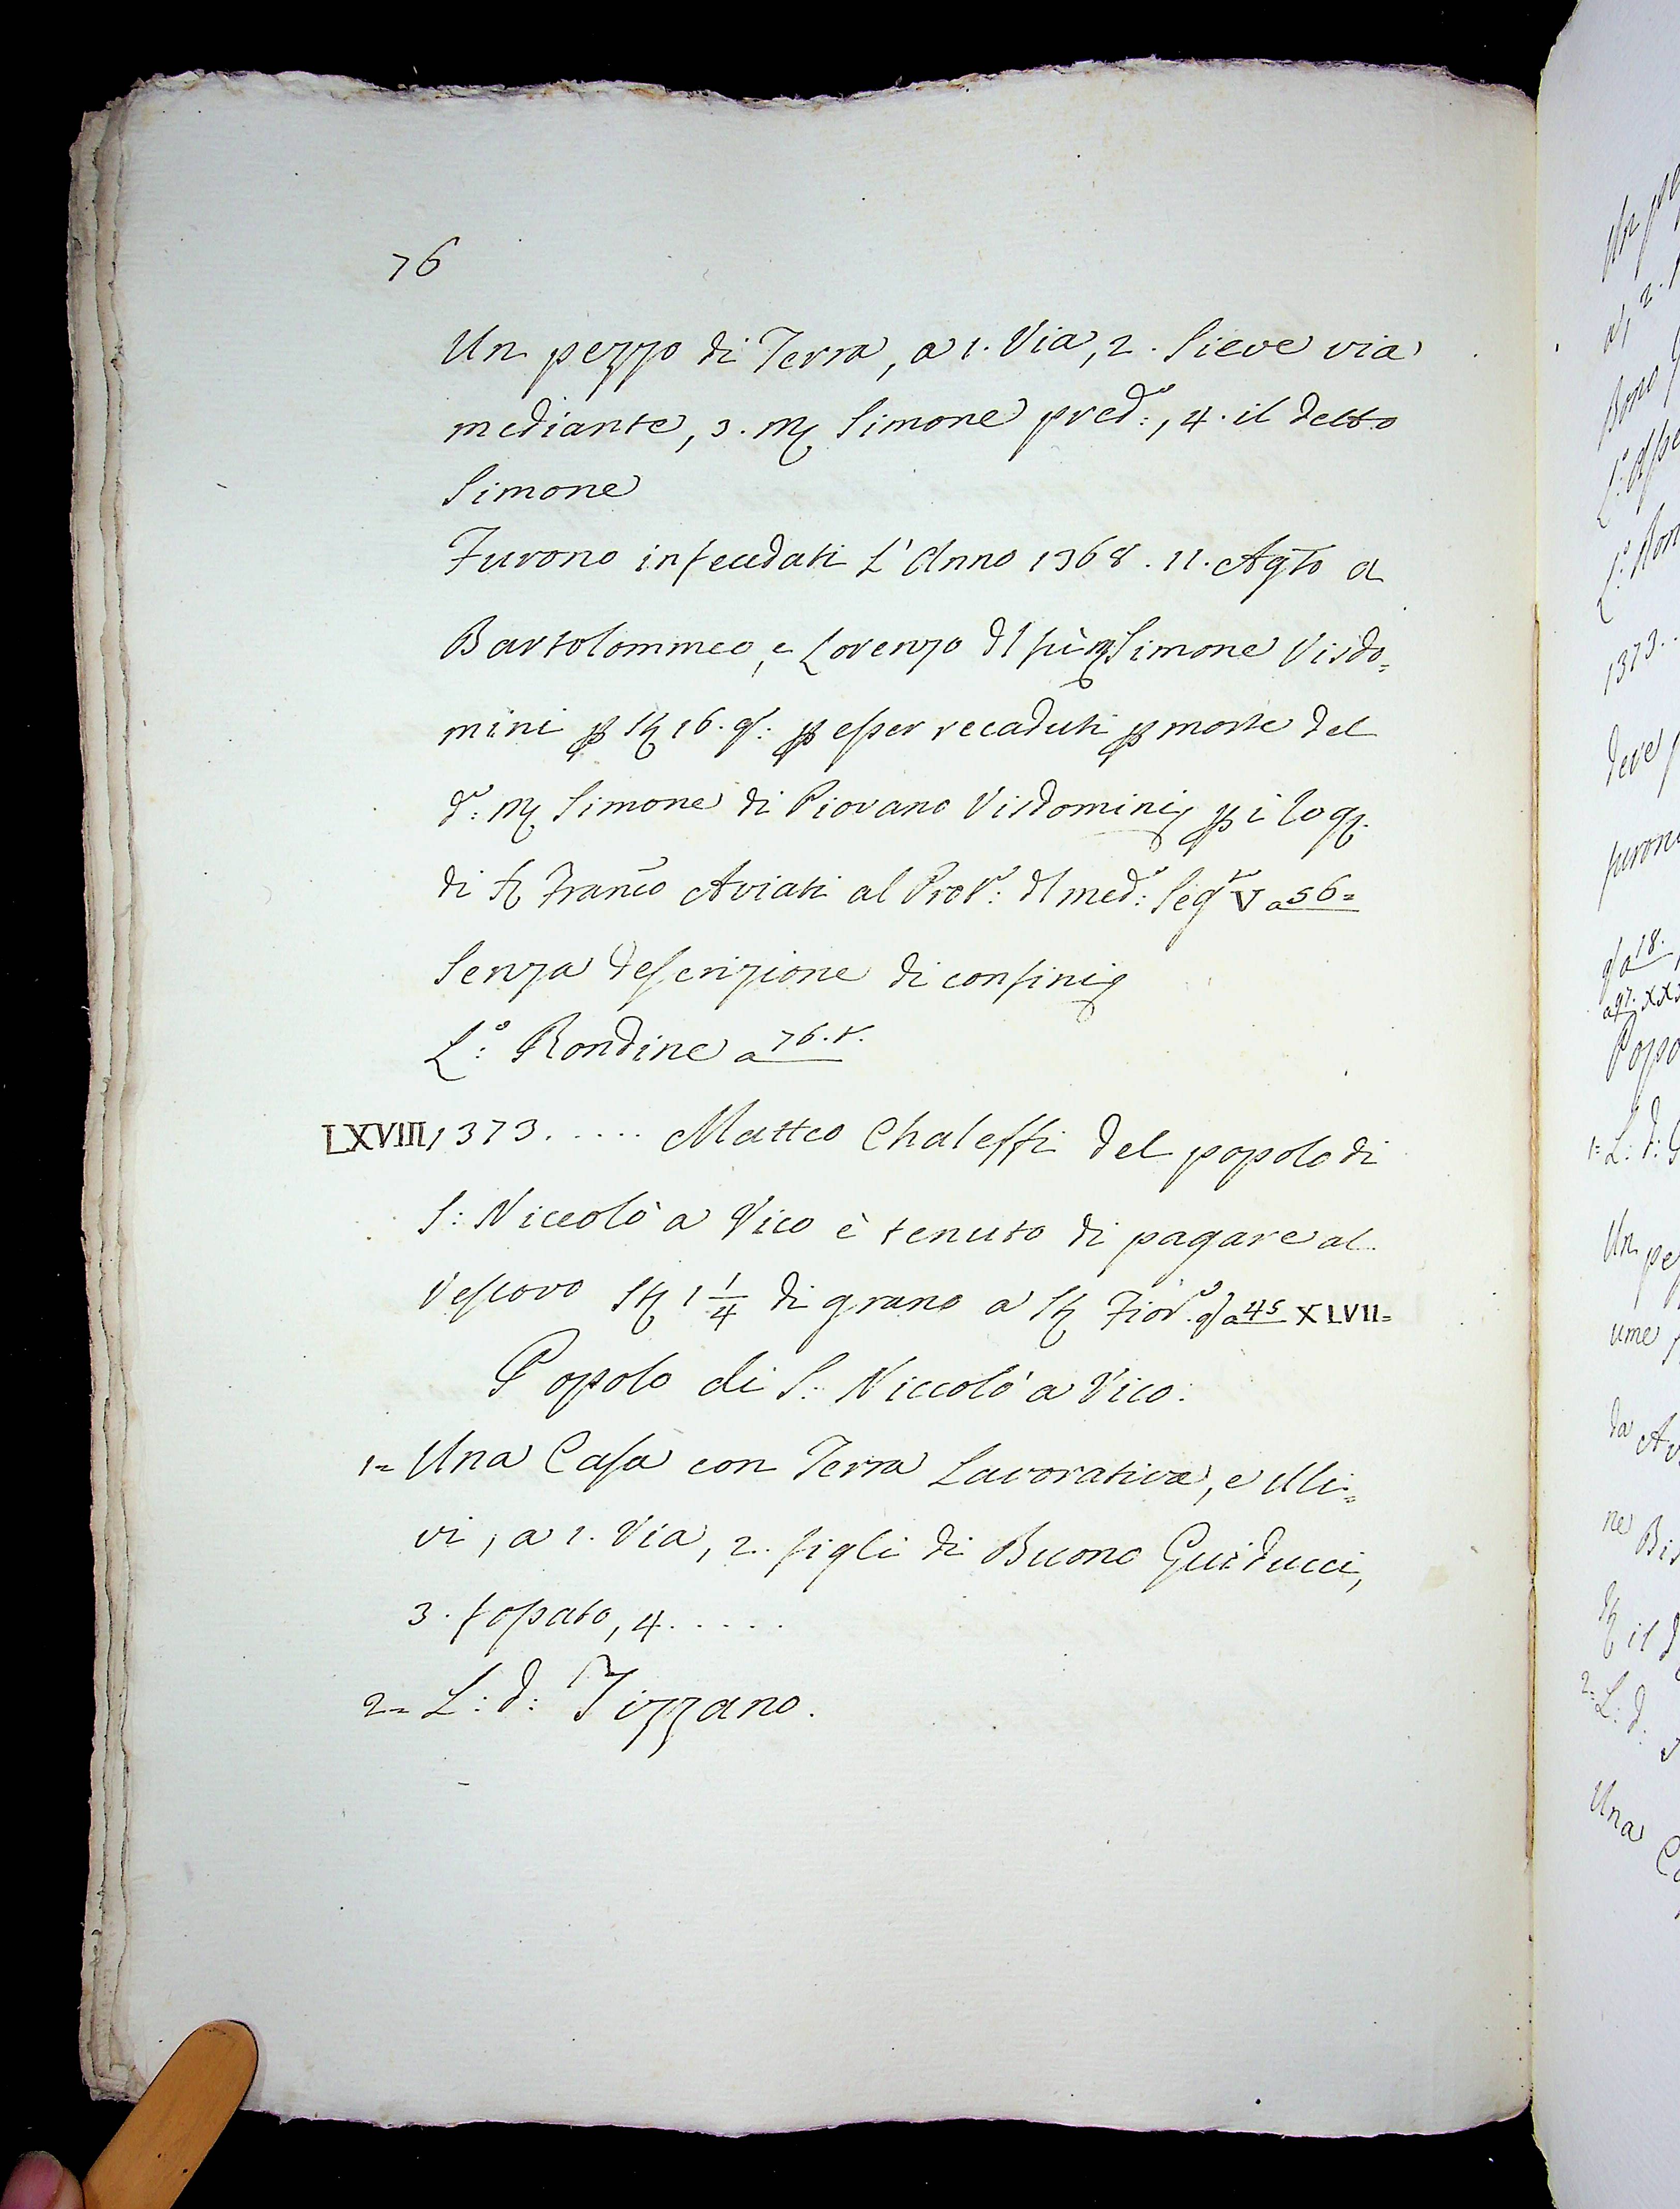 76
Un pezzo di Terra, a 1. Via, 2. Sieve via
mediante, 3. M Simone pred:º, 4. il detto
Simone
Furono infeudati L'Anno 1368. 11. Agto a
Bartolommeo, e Lorenzo dl fù M Simone Visdo=
mini p St 16. g: p esser recaduti p morte del
dº: M Simone di Piovano Visdomini, p i rog.
di Franco Aviati al Prot: dl medº: Segto V a 56=
Senza descrizione di confini
Lº: Rondine a 76.t.
LXVIII, 1373. ..... Matteo Chaleffi del popolo di
S: Niccolò a Vico è tenuto di pagare al
Vescovo St 1 1/4 di grano a St Fiorº. a 45 XLVII=
Popolo di S: Niccolò a Vico:
1= Una Casa con Terra Lavorativa, e Uli=
vi, a 1. Via, 2. figli di Buono Guiducci,
3. fossato, 4. .....
2= L: d: Tizzano.